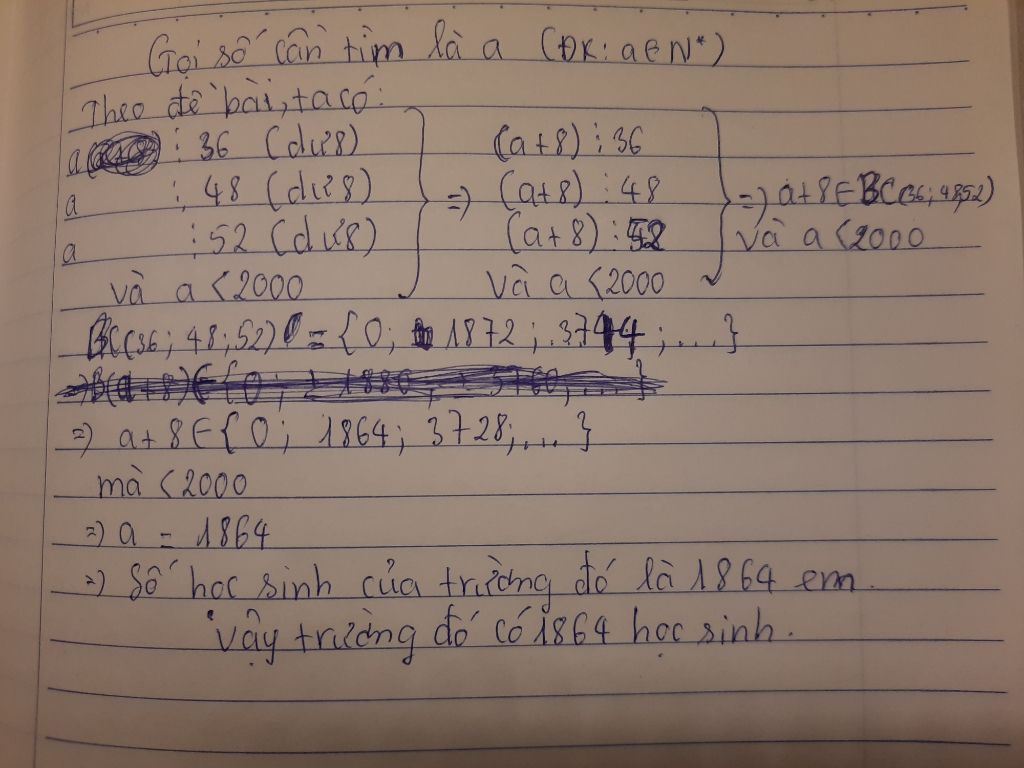 Gọi số cần tìm là a (ĐK: a∈N*)
Theo đề bài, ta có:
a ⋮ 36 (dư 8) (a+8) ⋮ 36
a ⋮ 48 (dư 8) => (a+8) ⋮ 48 => a+8 ∈ BC(36; 48,52)
a ⋮ 52 (dư 8) (a+8) ⋮ 52 và a < 2000
và a < 2000 và a < 2000
BC(36; 48; 52) = {0; 1872; 3744; ...}
=> a+8 ∈ {0; 1864; 3728; ...}
mà < 2000
=> a = 1864
=> Số học sinh của trường đó là 1864 em.
Vậy trường đó có 1864 học sinh.